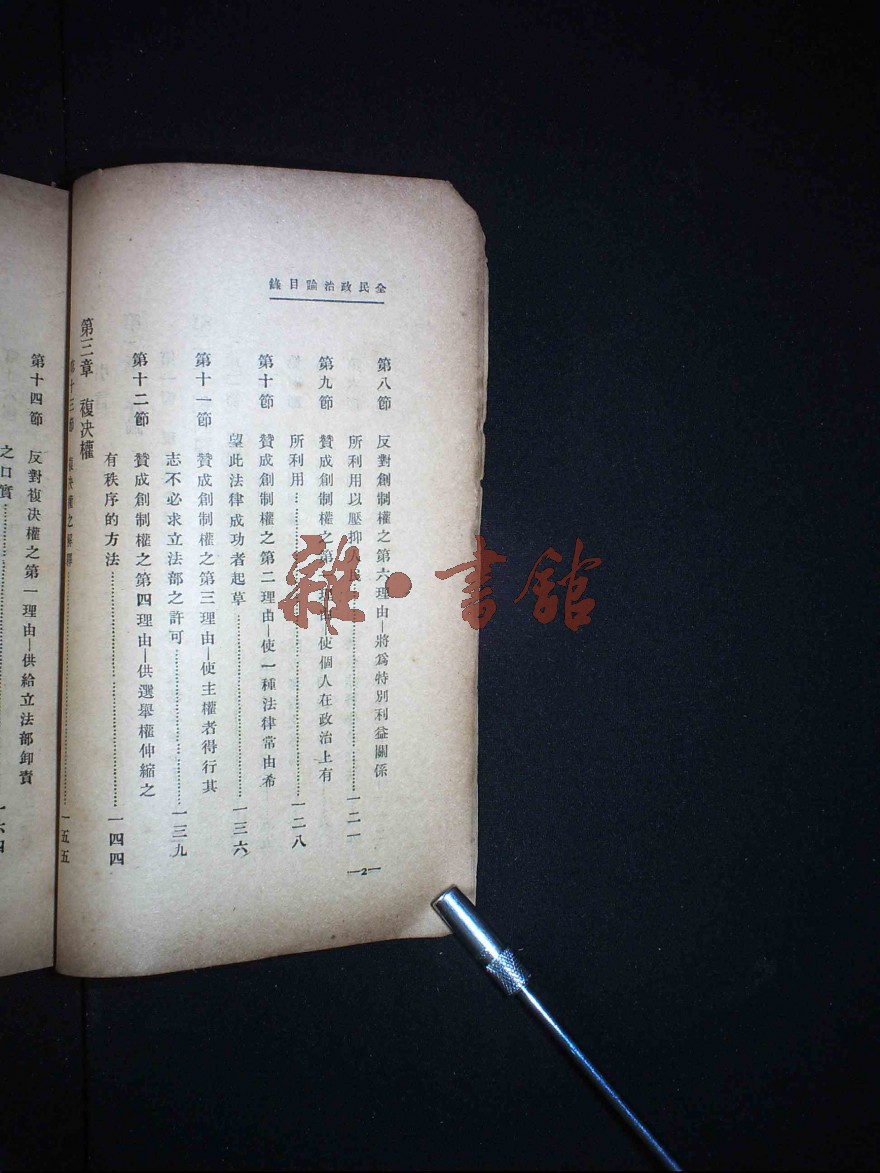 全民政治論目錄
第八節 反對創制權之第六理由—將爲特別利益關係
所利用以壓抑人民…………一二一
第九節 贊成創制權之第一理由—使個人在政治上有
所利用…………一二八
第十節 贊成創制權之第二理由—使一種法律常由希
望此法律成功者起草…………一三六
第十一節 贊成創制權之第三理由—使主權者得行其
志不必求立法部之許可…………一三九
第十二節 贊成創制權之第四理由—供選舉權伸縮之
有秩序的方法…………一四四
第三章 複决權
第十三節 複决權之解釋…………一五五
—2—
第十四節 反對複决權之第一理由—供給立法部卸責
之口實…………一六四
雜·書館